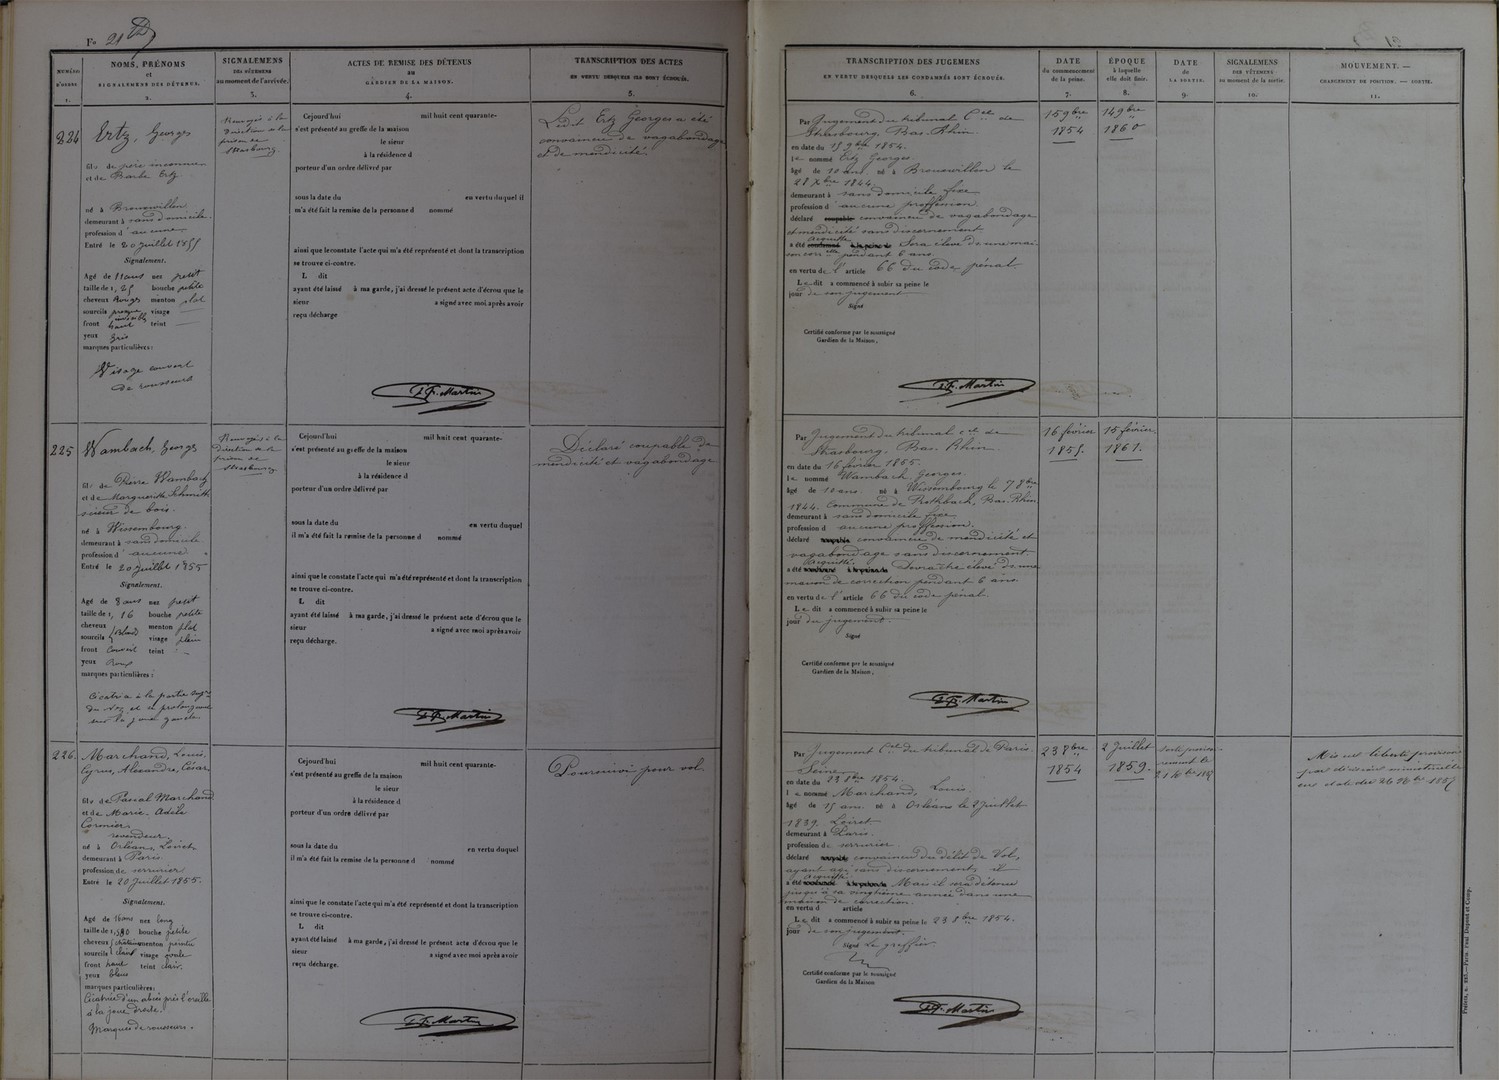 Fo 21
NUMÉRO
d'ordre
1.
NOMS, PRÉNOMS
et
SIGNALEMENS DES DÉTENUS.
2.
SIGNALEMENS
DES VÊTEMENS
au moment de l'arrivée.
3.
ACTES DE REMISE DES DÉTENUS
AU
GARDIEN DE LA MAISON.
4.
TRANSCRIPTION DES ACTES
EN VERTU DESQUELS ILS SONT ÉCROUÉS.
5.
224
Ertz, Georges
fils de père inconnu
et de Barbe Ertz
né à Brouwillen
demeurant à sans domicile.
profession d'aucune
Entré le 20 Juillet 1855
Signalement.
Agé de 11 ans nez petit
taille de 1, 25 bouche petite
cheveux Rouges menton plat
sourcils presque invisibles visage
front haut teint
yeux gris
marques particulières :
Visage couvert
de rousseurs
Renvoyé à la
Direction de la
prison de
Strasbourg
Cejourd'hui mil huit cent quarante-
s'est présenté au greffe de la maison
le sieur
à la résidence d
porteur d'un ordre délivré par
sous la date du en vertu duquel il
m'a été fait la remise de la personne d nommé
ainsi que le constate l'acte qui m'a été représenté et dont la transcription
se trouve ci-contre.
L dit
ayant été laissé à ma garde, j'ai dressé le présent acte d'écrou que le
sieur a signé avec moi après avoir
reçu décharge
J. P. Martin
Ledit Ertz Georges a été
convaincu de vagabondage
et de mendicité.
225
Wambach, Georges
fils de Pierre Wambach
et de Marguerite Schmitt
scieur de bois.
né à Wissembourg.
demeurant à sans domicile
profession d' aucune
Entré le 20 Juillet 1855
Signalement.
Agé de 8 ans nez petit
taille de 1, 16 bouche petite
cheveux blond menton plat
sourcils visage plein
front Couvert teint
yeux Roux
marques particulières :
Cicatrice à la partie supre
du nez et se prolongeant
sur la joue gauche.
Renvoyé à la
Direction de la
prison de
Strasbourg
Cejourd'hui mil huit cent quarante-
s'est présenté au greffe de la maison
le sieur
à la résidence d
porteur d'un ordre délivré par
sous la date du en vertu duquel
il m'a été fait la remise de la personne d nommé
ainsi que le constate l'acte qui m'a été représenté et dont la transcription
se trouve ci-contre.
L dit
ayant été laissé à ma garde, j'ai dressé le présent acte d'écrou que le
sieur a signé avec moi après avoir
reçu décharge.
J. P. Martin
Déclaré coupable de
mendicité et vagabondage
226.
Marchand, Louis,
Cyrus, Alexandre, César,
fils de Pascal Marchand
et de Marie Adèle
Cormier
revendeur.
né à Orléans, Loiret
demeurant à Paris
profession de serrurier
Entré le 20 Juillet 1855.
Signalement.
Agé de 16 ans nez long
taille de 1, 580 bouche petite
cheveux châtains menton pointu
sourcils clairs visage ovale
front haut teint clair.
yeux bleus
marques particulières:
Cicatrice d'un abcès près l'oreille
à la joue droite.
Marques de rousseurs.
Cejourd'hui mil huit cent quarante-
s'est présenté au greffe de la maison
le sieur
à la résidence d
porteur d'un ordre délivré par
sous la date du en vertu duquel
il m'a été fait la remise de la personne d nommé
ainsi que le constate l'acte qui m'a été représenté et dont la transcription
se trouve ci-contre.
L dit
ayant été laissé à ma garde, j'ai dressé le présent acte d'écrou que le
sieur a signé avec moi après avoir
reçu décharge.
J. P. Martin
Poursuivi pour vol.
TRANSCRIPTION DES JUGEMENS
EN VERTU DESQUELS LES CONDAMNÉS SONT ÉCROUÉS.
6.
DATE
du commencement
de la peine.
7.
ÉPOQUE
à laquelle
elle doit finir.
8.
DATE
de
LA SORTIE.
9.
SIGNALEMENS
DES VÊTEMENS
au moment de la sortie.
10.
MOUVEMENT. —
CHANGEMENT DE POSITION. — SORTIE.
11.
Par Jugement du tribunal Cel de
Strasbourg, Bas-Rhin.
en date du 15 9bre 1854.
le nommé Ertz Georges.
âgé de 10 ans né à Brouwillen le
28 Xbre 1844
demeurant à sans domicile fixe
profession d' aucune proffession.
déclaré coupable convaincu de vagabondage
et mendicité sans discernement
a été condamné à la peine de Acquitté Sera élevé dans une mai-
son corrlle pendant 6 ans.
en vertu de l' article 66 du code pénal
Le dit a commencé à subir sa peine le
jour de son jugement
Signé
Certifié conforme par le soussigné
Gardien de la Maison,
J. P. Martin
15 9bre
1854
14 9bre
1860
Par Jugement du tribunal cel de
Strasbourg, Bas. Rhin
en date du 16 février 1855.
le nommé Wambach Georges
âgé de 10 ans. né à Wissembourg le 7 8bre
1844. Commune de Rothbach, Bas. Rhin
demeurant à sans domicile fixe
profession d aucune proffession.
déclaré coupable convaincu de mendicité et
vagabondage sans discernement
a été condamné à la peine de Acquitté. Devra être élevé dans une
maison de correction pendant 6 ans.
en vertu de l' article 66 du code pénal.
Le dit a commencé à subir sa peine le
jour du jugement.
Signé
Certifié conforme par le soussigné
Gardien de la Maison,
J. P. Martin
16 février
1855.
15 février
1861.
Par Jugement Cel du tribunal de Paris.
Seine
en date du 23 8bre 1854.
le nommé Marchand, Louis
âgé de 15 ans né à Orléans le 2 Juillet
1839. Loiret
demeurant à Paris.
profession de serrurier
déclaré coupable convaincu du délit de Vol,
ayant agi sans discernement, il
a été condamné à la peine de Acquitté Mais il sera détenu
jusqu'à sa vingtième année dans une
maison de correction.
en vertu d article
Le dit a commencé à subir sa peine le 23 8bre 1854.
jour de son jugement.
Signé Le greffier
Certifié conforme par le soussigné
Gardien de la Maison
J. P. Martin
23 8bre
1854
2 Juillet
1859.
Mis en liberté provisoire
par décision ministérielle
Prairie, c. 227.—Paris, Paul Dupont et Comp.